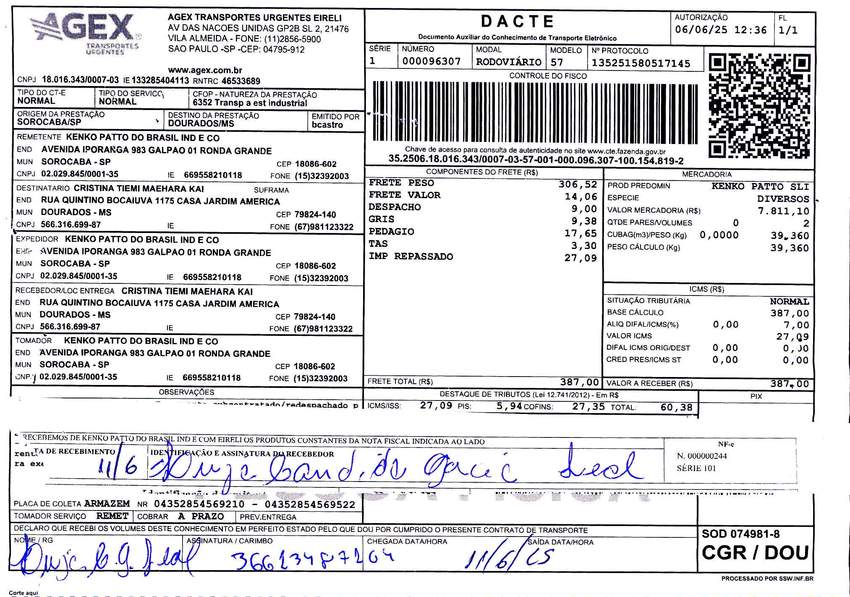 AGEX
TRANSPORTES
URGENTES
AGEX TRANSPORTES URGENTES EIRELI
AV DAS NACOES UNIDAS GP2B SL 2, 21476
VILA ALMEIDA - FONE: (11)2856-5900
SAO PAULO -SP -CEP: 04795-912
www.agex.com.br
CNPJ 18.016.343/0007-03 IE 133285404113 RNTRC 46533689
DACTE
Documento Auxiliar do Conhecimento de Transporte Eletrônico
AUTORIZAÇÃO FL
06/06/25 12:36 1/1
SÉRIE NÚMERO MODAL MODELO Nº PROTOCOLO
1 000096307 RODOVIÁRIO 57 135251580517145
CONTROLE DO FISCO
Chave de acesso para consulta de autenticidade no site www.cte.fazenda.gov.br
35.2506.18.016.343/0007-03-57-001-000.096.307-100.154.819-2
TIPO DO CT-E TIPO DO SERVIÇO CFOP - NATUREZA DA PRESTAÇÃO
NORMAL NORMAL 6352 Transp a est industrial
ORIGEM DA PRESTAÇÃO DESTINO DA PRESTAÇÃO EMITIDO POR
SOROCABA/SP DOURADOS/MS bcastro
REMETENTE KENKO PATTO DO BRASIL IND E CO
END AVENIDA IPORANGA 983 GALPAO 01 RONDA GRANDE
MUN SOROCABA - SP CEP 18086-602
CNPJ 02.029.845/0001-35 IE 669558210118 FONE (15)32392003
DESTINATARIO CRISTINA TIEMI MAEHARA KAI SUFRAMA
END RUA QUINTINO BOCAIUVA 1175 CASA JARDIM AMERICA
MUN DOURADOS - MS CEP 79824-140
CNPJ 566.316.699-87 IE FONE (67)981123322
EXPEDIDOR KENKO PATTO DO BRASIL IND E CO
END AVENIDA IPORANGA 983 GALPAO 01 RONDA GRANDE
MUN SOROCABA - SP CEP 18086-602
CNPJ 02.029.845/0001-35 IE 669558210118 FONE (15)32392003
RECEBEDOR/LOC ENTREGA CRISTINA TIEMI MAEHARA KAI
END RUA QUINTINO BOCAIUVA 1175 CASA JARDIM AMERICA
MUN DOURADOS - MS CEP 79824-140
CNPJ 566.316.699-87 IE FONE (67)981123322
TOMADOR KENKO PATTO DO BRASIL IND E CO
END AVENIDA IPORANGA 983 GALPAO 01 RONDA GRANDE
MUN SOROCABA - SP CEP 18086-602
CNPJ 02.029.845/0001-35 IE 669558210118 FONE (15)32392003
OBSERVAÇÕES
subcontratado/redespachado p
COMPONENTES DO FRETE (R$)
FRETE PESO 306,52
FRETE VALOR 14,06
DESPACHO 9,00
GRIS 9,38
PEDAGIO 17,65
TAS 3,30
IMP REPASSADO 27,09
FRETE TOTAL (R$) 387,00
MERCADORIA
PROD PREDOMIN KENKO PATTO SLI
ESPECIE DIVERSOS
VALOR MERCADORIA (R$) 7.811,10
QTDE PARES/VOLUMES 0 2
CUBAG(m3)/PESO (Kg) 0,0000 39,360
PESO CÁLCULO (Kg) 39,360
ICMS (R$)
SITUAÇÃO TRIBUTÁRIA NORMAL
BASE CÁLCULO 387,00
ALIQ DIFAL/ICMS(%) 0,00 7,00
VALOR ICMS 27,09
DIFAL ICMS ORIG/DEST 0,00 0,00
CRED PRES/ICMS ST 0,00 0,00
VALOR A RECEBER (R$) 387,00
DESTAQUE DE TRIBUTOS (Lei 12.741/2012) - Em R$ PIX
ICMS/ISS: 27,09 PIS: 5,94 COFINS: 27,35 TOTAL: 60,38
RECEBEMOS DE KENKO PATTO DO BRASIL IND E COM EIRELI OS PRODUTOS CONSTANTES DA NOTA FISCAL INDICADA AO LADO
TA DE RECEBIMENTO IDENTIFICAÇÃO E ASSINATURA DO RECEBEDOR
11/6
NF-e
N. 000000244
SÉRIE 101
PLACA DE COLETA ARMAZEM NR 04352854569210 - 04352854569522
TOMADOR SERVIÇO REMET COBRAR A PRAZO PREV.ENTREGA
DECLARO QUE RECEBI OS VOLUMES DESTE CONHECIMENTO EM PERFEITO ESTADO PELO QUE DOU POR CUMPRIDO O PRESENTE CONTRATO DE TRANSPORTE
NOME / RG ASSINATURA / CARIMBO CHEGADA DATA/HORA SAÍDA DATA/HORA
11/6/25
SOD 074981-8
CGR / DOU
PROCESSADO POR SSW.INF.BR
Corte aqui